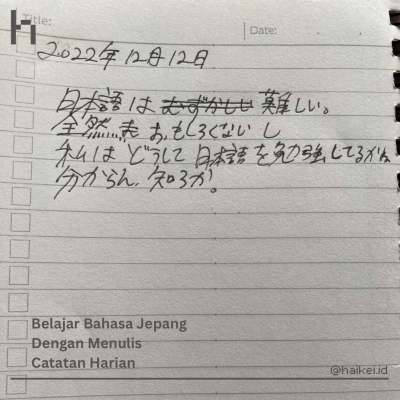 Title:
Date:
2022年12月12日
日本語は むずかしい 難しい。
全然 おもしろくないし
私は どうして 日本語を勉強してるかん
分からん、知るか。
Belajar Bahasa Jepang
Dengan Menulis
Catatan Harian
@haikei.id